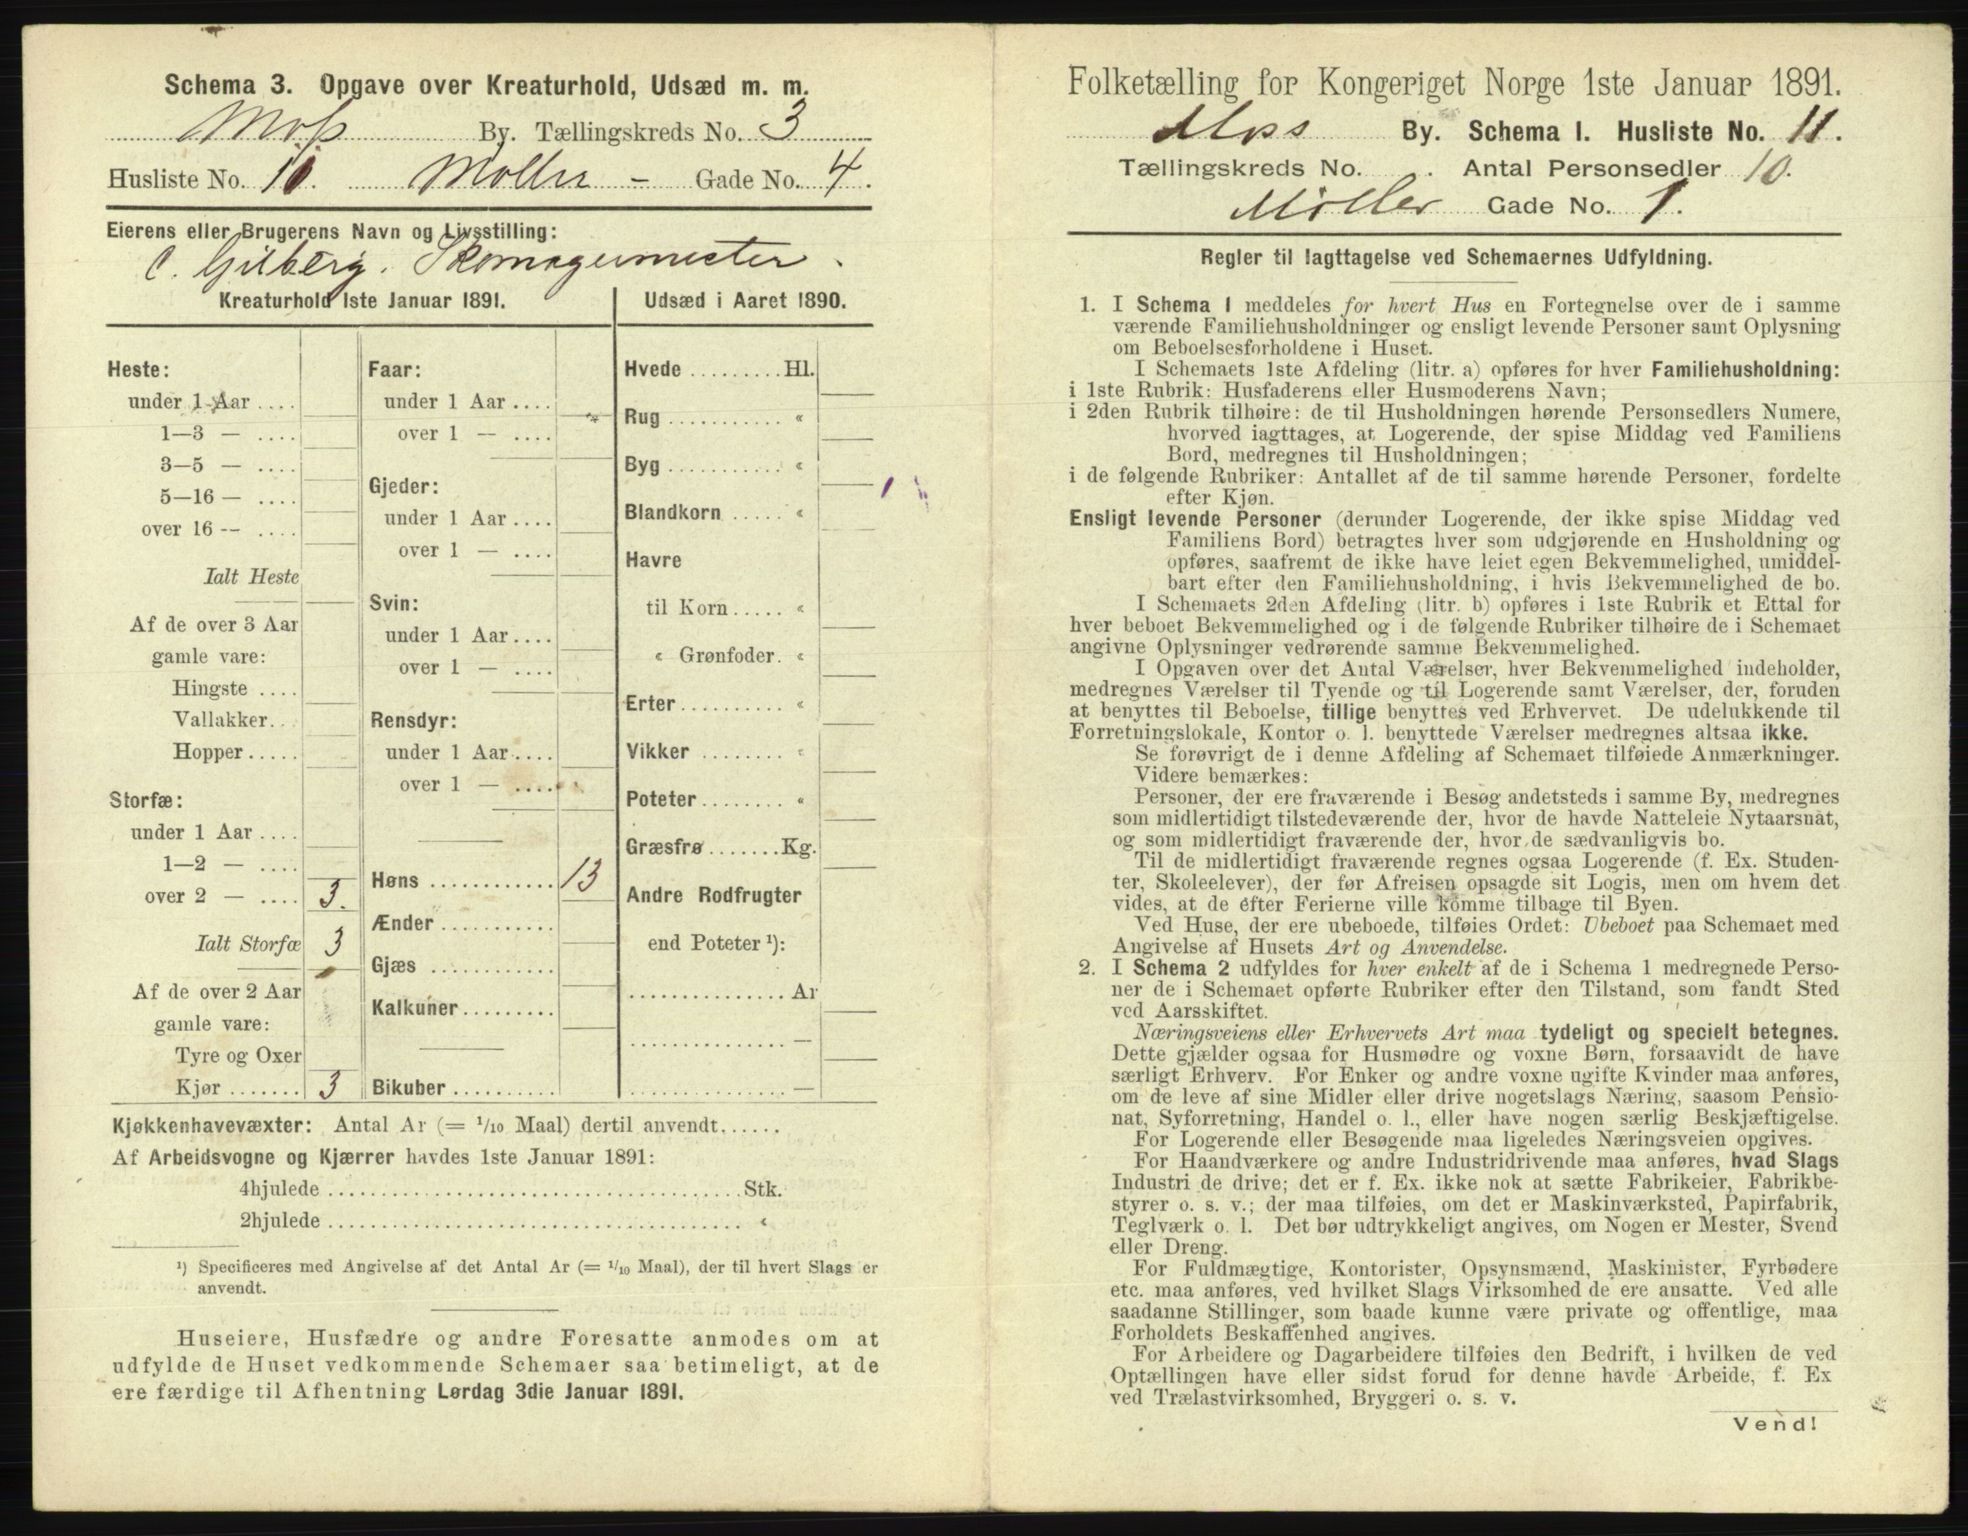 Schema 3. Opgave over Kreaturhold, Udsæd m. m.
Moss By. Tællingskreds No. 3
Husliste No. 11. Møller - Gade No. 4.
Eierens eller Brugerens Navn og Livsstilling:
C. Gilberg. Skomagermester.
Kreaturhold 1ste Januar 1891.
Heste:
under 1 Aar ....
1—3 — ....
3—5 — ....
5—16 — ....
over 16 -- ....
Ialt Heste
Af de over 3 Aar
gamle vare:
Hingste ....
Vallakker..
Hopper.....
Storfæ:
under 1 Aar ....
1—2 — ....
over 2 — .... 3.
Ialt Storfæ 3
Af de over 2 Aar
gamle vare:
Tyre og Oxer
Kjør ....... 3
Faar:
under 1 Aar ....
over 1 — ....
Gjeder:
under 1 Aar ....
over 1 — ....
Svin:
under 1 Aar ....
over 1 — ....
Rensdyr:
under 1 Aar ....
over 1 — ....
Høns ............ 13
Ænder ...........
Gjæs ............
Kalkuner.........
Bikuber ..........
Udsæd i Aaret 1890.
Hvede .........Hl.
Rug ........... «
Byg ........... «
Blandkorn ..... «
Havre
til Korn ..... «
« Grønfoder. «
Erter.......... «
Vikker ........ «
Poteter........ «
Græsfrø .......Kg.
Andre Rodfrugter
end Poteter ¹):
............... Ar
............... —
............... —
Kjøkkenhavevæxter: Antal Ar (= 1/10 Maal) dertil anvendt......
Af Arbeidsvogne og Kjærrer havdes 1ste Januar 1891:
4hjulede ........................................Stk.
2hjulede ........................................ «
¹) Specificeres med Angivelse af det Antal Ar (= 1/10 Maal), der til hvert Slags er
anvendt.
Huseiere, Husfædre og andre Foresatte anmodes om at
udfylde de Huset vedkommende Schemaer saa betimeligt, at de
ere færdige til Afhentning Lørdag 3die Januar 1891.
Folketælling for Kongeriget Norge 1ste Januar 1891.
Moss By. Schema I. Husliste No. 11.
Tællingskreds No. . Antal Personsedler 10.
Møller Gade No. 1.
Regler til Iagttagelse ved Schemaernes Udfyldning.
1. I Schema 1 meddeles for hvert Hus en Fortegnelse over de i samme
værende Familiehusholdninger og ensligt levende Personer samt Oplysning
om Beboelsesforholdene i Huset.
I Schemaets 1ste Afdeling (litr. a) opføres for hver Familiehusholdning:
i 1ste Rubrik: Husfaderens eller Husmoderens Navn;
i 2den Rubrik tilhøire: de til Husholdningen hørende Personsedlers Numere,
hvorved iagttages, at Logerende, der spise Middag ved Familiens
Bord, medregnes til Husholdningen;
i de følgende Rubriker: Antallet af de til samme hørende Personer, fordelte
efter Kjøn.
Ensligt levende Personer (derunder Logerende, der ikke spise Middag ved
Familiens Bord) betragtes hver som udgjørende en Husholdning og
opføres, saafremt de ikke have leiet egen Bekvemmelighed, umiddel-
bart efter den Familiehusholdning, i hvis Bekvemmelighed de bo.
I Schemaets 2den Afdeling (litr. b) opføres i 1ste Rubrik et Ettal for
hver beboet Bekvemmelighed og i de følgende Rubriker tilhøire de i Schemaet
angivne Oplysninger vedrørende samme Bekvemmelighed.
I Opgaven over det Antal Værelser, hver Bekvemmelighed indeholder,
medregnes Værelser til Tyende og til Logerende samt Værelser, der, foruden
at benyttes til Beboelse, tillige benyttes ved Erhvervet. De udelukkende til
Forretningslokale, Kontor o. l. benyttede Værelser medregnes altsaa ikke.
Se forøvrigt de i denne Afdeling af Schemaet tilføiede Anmærkninger.
Videre bemærkes:
Personer, der ere fraværende i Besøg andetsteds i samme By, medregnes
som midlertidigt tilstedeværende der, hvor de havde Natteleie Nytaarsnat,
og som midlertidigt fraværende der, hvor de sædvanligvis bo.
Til de midlertidigt fraværende regnes ogsaa Logerende (f. Ex. Studen-
ter, Skoleelever), der før Afreisen opsagde sit Logis, men om hvem det
vides, at de efter Ferierne ville komme tilbage til Byen.
Ved Huse, der ere ubeboede, tilføies Ordet: Ubeboet paa Schemaet med
Angivelse af Husets Art og Anvendelse.
2. I Schema 2 udfyldes for hver enkelt af de i Schema 1 medregnede Perso-
ner de i Schemaet opførte Rubriker efter den Tilstand, som fandt Sted
ved Aarsskiftet.
Næringsveiens eller Erhvervets Art maa tydeligt og specielt betegnes.
Dette gjælder ogsaa for Husmødre og voxne Børn, forsaavidt de have
særligt Erhverv. For Enker og andre voxne ugifte Kvinder maa anføres,
om de leve af sine Midler eller drive nogetslags Næring, saasom Pensio-
nat, Syforretning, Handel o. l., eller have nogen særlig Beskjæftigelse.
For Logerende eller Besøgende maa ligeledes Næringsveien opgives.
For Haandværkere og andre Industridrivende maa anføres, hvad Slags
Industri de drive; det er f. Ex. ikke nok at sætte Fabrikeier, Fabrikbe-
styrer o. s. v.; der maa tilføies, om det er Maskinværksted, Papirfabrik,
Teglværk o. l. Det bør udtrykkeligt angives, om Nogen er Mester, Svend
eller Dreng.
For Fuldmægtige, Kontorister, Opsynsmænd, Maskinister, Fyrbødere
etc. maa anføres, ved hvilket Slags Virksomhed de ere ansatte. Ved alle
saadanne Stillinger, som baade kunne være private og offentlige, maa
Forholdets Beskaffenhed angives.
For Arbeidere og Dagarbeidere tilføies den Bedrift, i hvilken de ved
Optællingen have eller sidst forud for denne havde Arbeide, f. Ex
ved Trælastvirksomhed, Bryggeri o. s. v.
Vend!